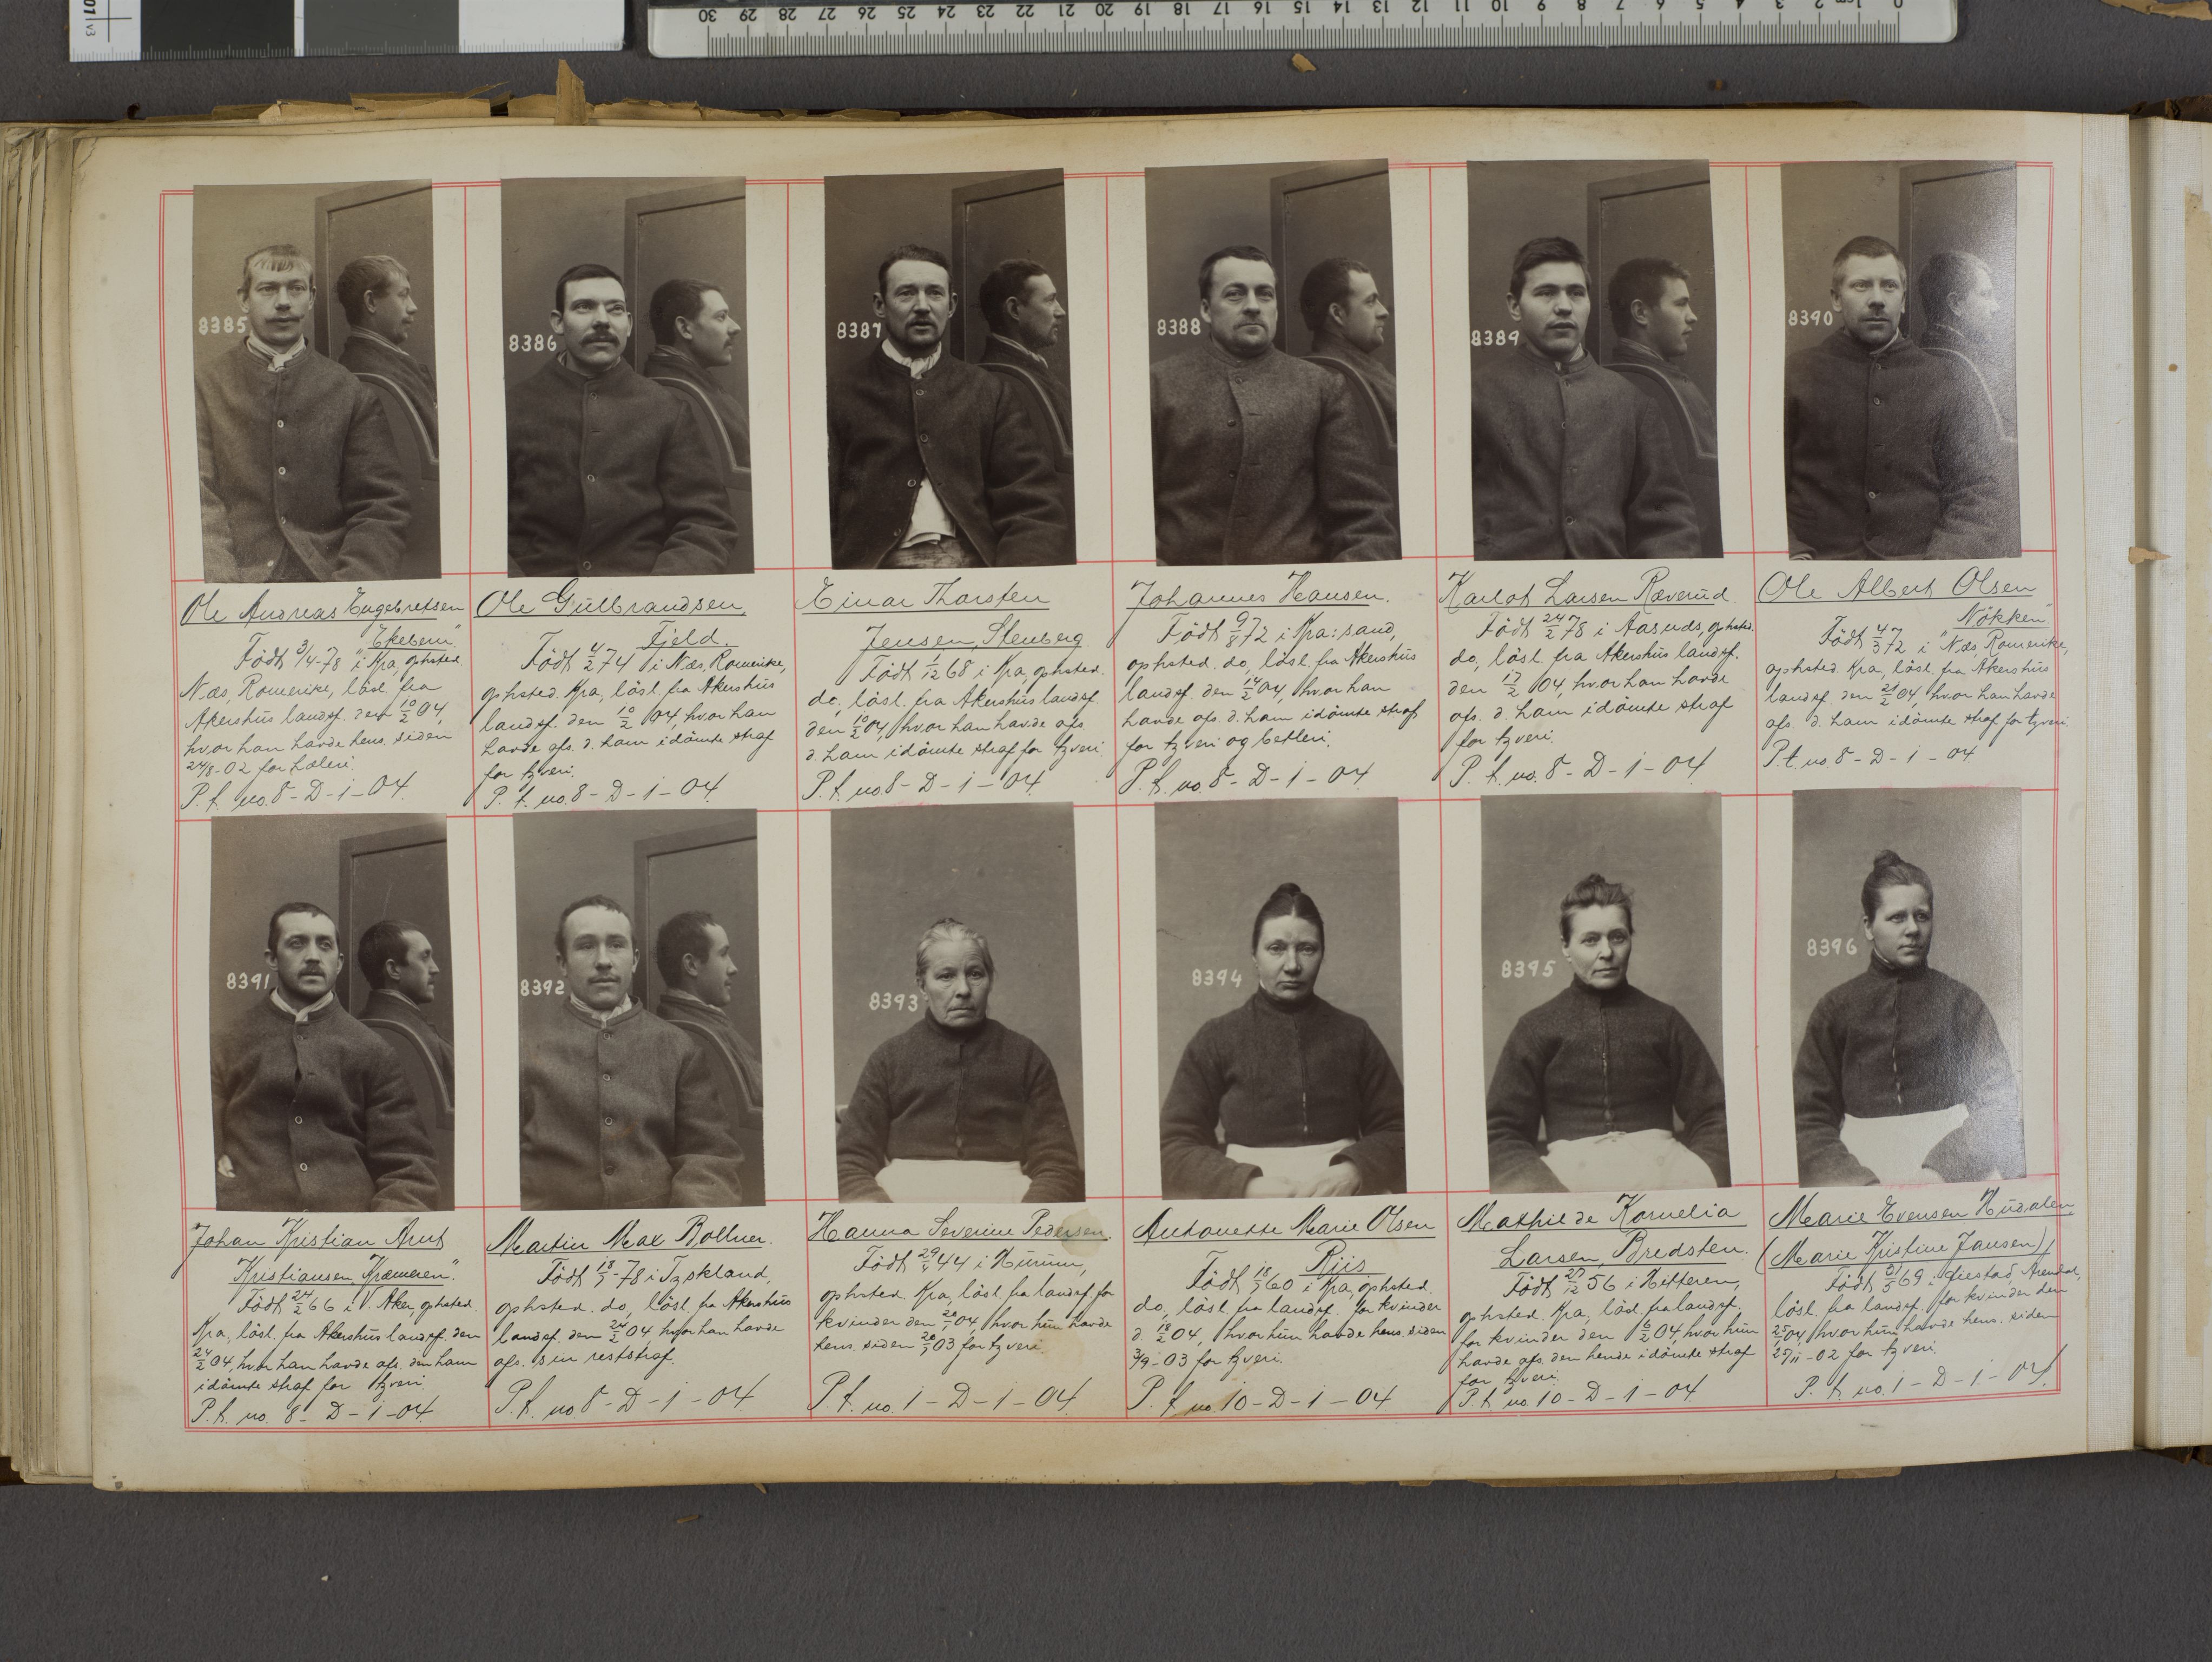 01 v3
30 29 28 27 26 25 24 23 22 21 20 19 18 17 16 15 14 13 12 11 10 9 8 7 6 5 4 3 2 1 cm 0
8385
Ole Andreas Engebretsen
"Ekebern"
Födt 3/4-78 i Kra, ophsted.
Næs, Romerike, lösl. fra
Akershus landsf. den 10/2 04,
hvor han havde hens. siden
24/8-02 for hæleri.
P.t. no. 8-D-1-04.
8386
Ole Gulbrandsen,
Fjeld.
Födt 4/2 74 i Næs, Romerike,
ophsted. Kra, lösl. fra Akershus
landsf. den 10/2 04, hvor han
havde afs. d. ham idömte straf
for tyveri.
P.t. no. 8-D-1-04.
8387
Einar Thorsten
Jensen, Stenberg
Födt 1/12 68 i Kra, ophsted.
do, lösl. fra Akershus landsf.
den 10/2 04, hvor han havde afs.
d. ham idömte straf for tyveri.
P.t. no 8-D-1-04.
8388
Johannes Hansen.
Födt 9/8 72 i Kra:sand,
ophsted. do, lösl. fra Akershus
landsf. den 14/2 04, hvor han
havde afs. d. ham idömte straf
for tyveri og betleri.
P.t. no. 8-D-1-04.
8389
Karlot Larsen Røverud.
Födt 24/2 78 i Aasnes, ophsted.
do, lösl. fra Akershus landsf.
den 17/2 04, hvor han havde
afs. d. ham idömte straf
for tyveri.
P.t. no. 8-D-1-04.
8390
Ole Albert Olsen
Nökken"
Födt 4/3 72 i "Næs, Romerike,
ophsted. Kra, lösl. fra Akershus
landsf. den 21/2 04, hvor han havde
afs. d. ham idömte straf for tyveri.
P.t. no 8-D-1-04.
8391
Johan Kristian Arnt
Kristiansen "Kræmeren".
Födt 24/2 66 i V. Aker, ophsted.
Kra, lösl. fra Akershus landsf. den
24/2 04, hvor han havde afs. den ham
idömte straf for tyveri.
P.t. no. 8-D-1-04.
8392
Martin Max Bollner.
Födt 18/7-78 i Tyskland,
ophsted. do, lösl. fra Akershus
landsf. den 24/2 04, hvor han havde
afs. sin reststraf.
P.t. no 8-D-1-04
8393
Hanna Severine Pedersen.
Födt 29/4 44 i Hurum,
ophsted. Kra, lösl. fra landsf. for
kvinder den 20/1 04, hvor hun havde
hens. siden 03 for tyveri.
P.t. no. 1-D-1-04.
8394
Antonette Marie Olsen
Riis
Födt 18/7 60 i Kra, ophsted.
do, lösl. fra landsf. for kvinder
d. 18/2 04, hvor hun havde hens. siden
3/9-03 for tyveri.
P.t. no. 10-D-1-04
8395
Mathilde Kornelia
Larsen, Bredsten.
Födt 27/12 56 i Hitteren,
ophsted. Kra, lösl. fra landsf.
for kvinder den 6/2 04, hvor hun
havde afs. den hende idömte straf
for tyveri.
P.t. no 10-D-1-04.
8396
Marie Evensen Hudalen
(Marie Kristine Jansen)
Födt 31/5 69 i Fiestad, Arendal,
lösl. fra landsf. for kvinder den
04, hvor hun havde hens. siden
27/11-02 for tyveri.
P.t. no. 1-D-1-04.